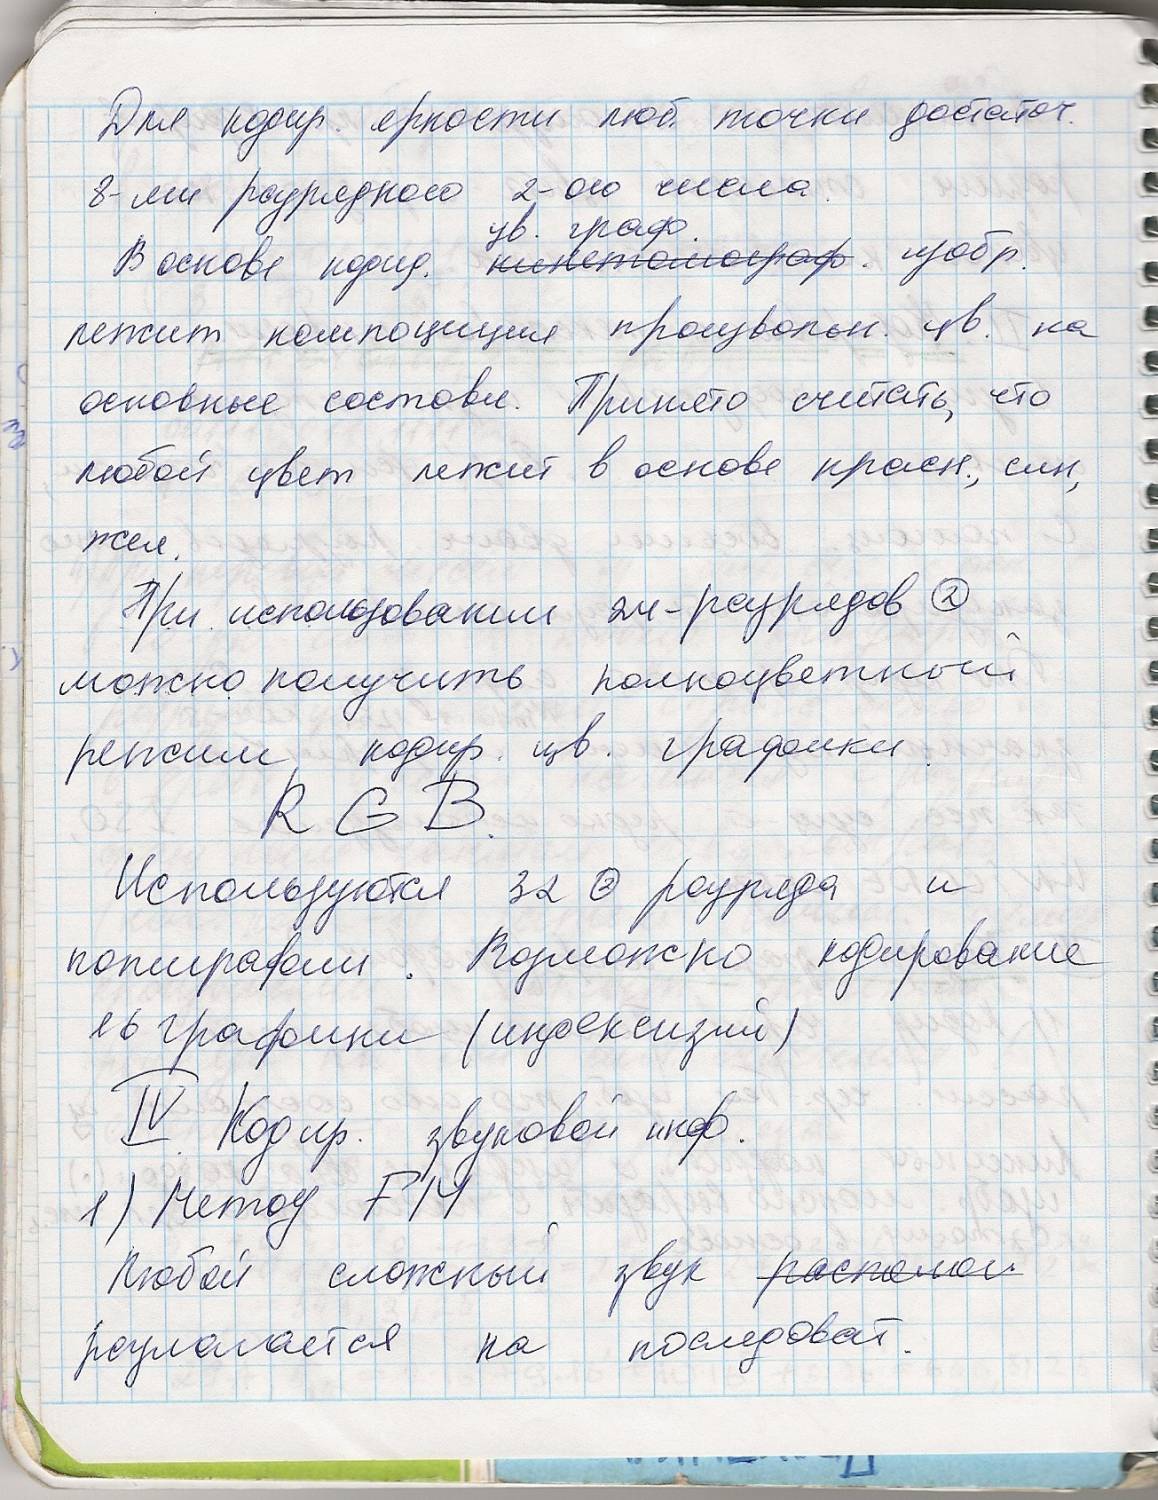 Для кодир. яркости люб. точки достаточ.
8-ми разрядного 2-ого числа.
цв. граф.
В основе кодир. изобр.
лежит композиция произвольн. цв. на
основные составл. Принято считать, что
любой цвет лежит в основе красн., син,
жел.
При использовании 24-разрядов ②
можно получить полноцветный
режим кодир. цв. графики.
R G B.
Используются 32 ② разряда и
полиграфии. Возможно кодирование
16 графики (индексизий)
IV Кодир. звуковой инф.
1) Метод FM
Любой сложный звук
разлагается на последоват.